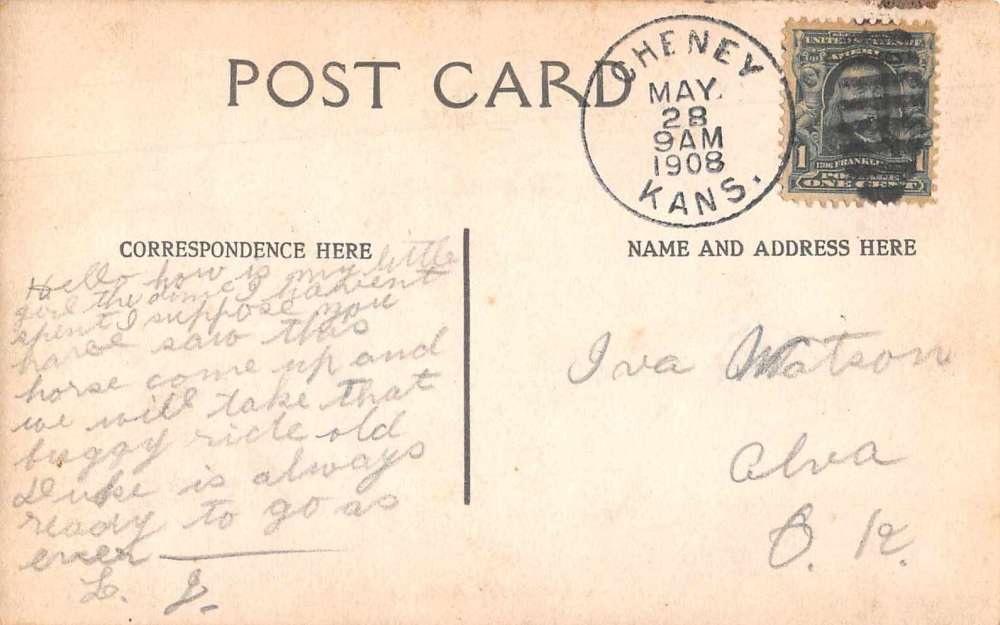 POST CARD
CHENEY
MAY.
28
9AM
1908
KANS.
UNITED STATES OF
1
1706 FRANKLIN
1
ONE CENT
CORRESPONDENCE HERE
Hello how is my little
girl the dime I havent
spent I suppose you
have saw this
horse come up and
we will take that
buggy ride old
Duke is always
ready to go as
ever
L. J.
NAME AND ADDRESS HERE
Iva Watson
Alva
O. K.